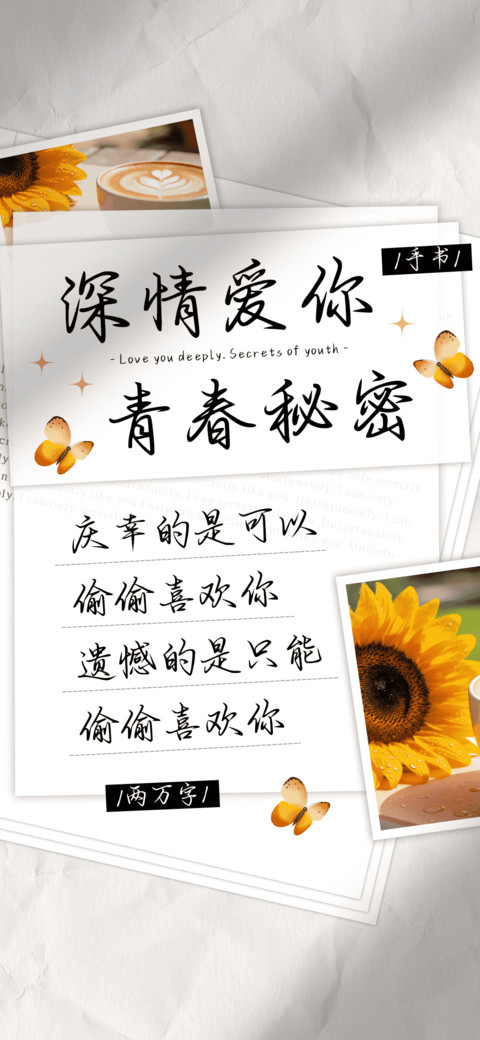 /手书/
深情爱你
- Love you deeply. Secrets of youth -
青春秘密
庆幸的是可以
偷偷喜欢你
遗憾的是只能
偷偷喜欢你
/两万字/